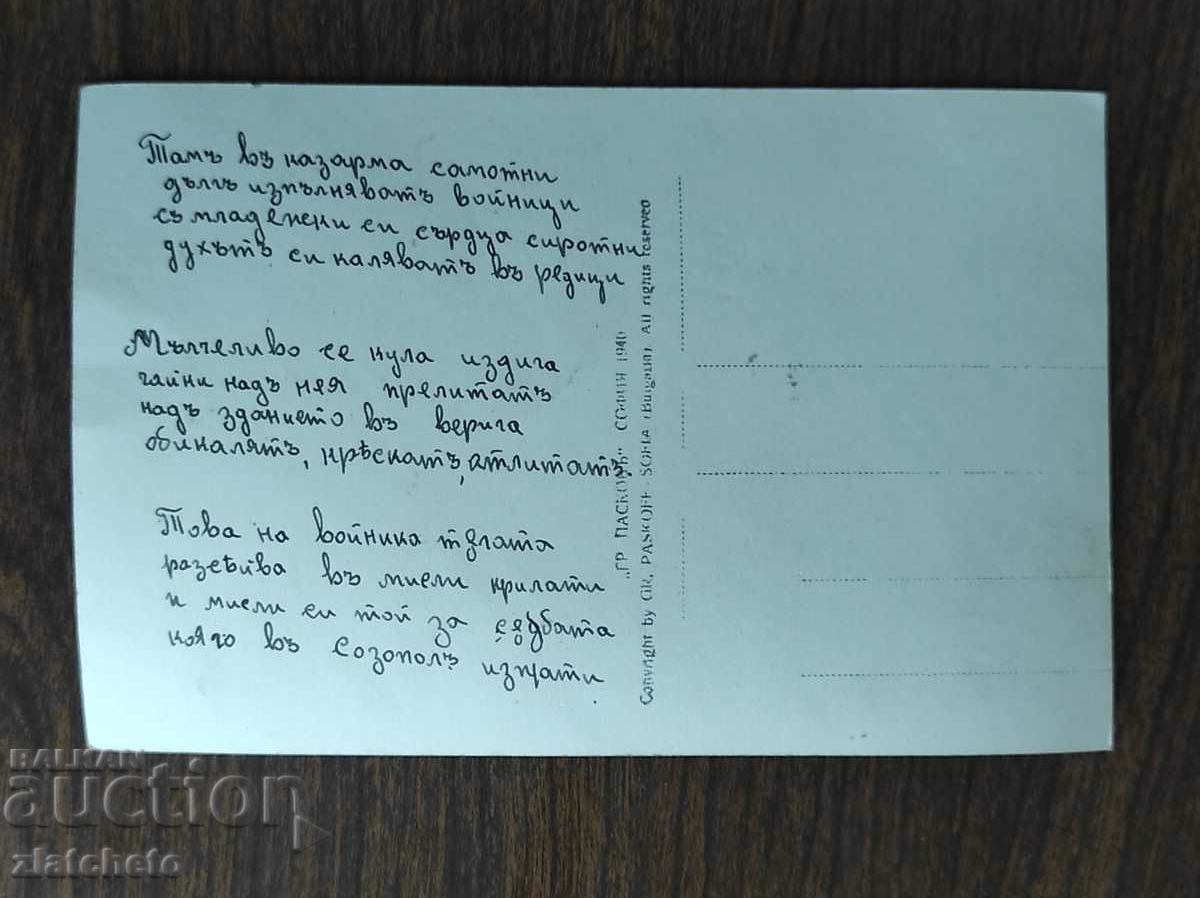 Тамъ въ казарма самотни
дългъ изпълняватъ войници
съ младенски си сърдца сиротни
духътъ си каляватъ въ редици
Мълчеливо се кула издига
гайни надъ нея прелитатъ
надъ зданието въ верига
обикалятъ, крѣскатъ, атлитатъ.
Това на войника тѫгата
разсѣйва въ мисли крилати
и мисли си той за сѫдбата
която въ Созополъ изпрати.
„ГР ПАСКОВЪ" СОФИЯ 1940
Copyright by GR. PASKOFF - SOFIA (Bulgaria) All rights reserved
BALKAN
auction
zlatcheto